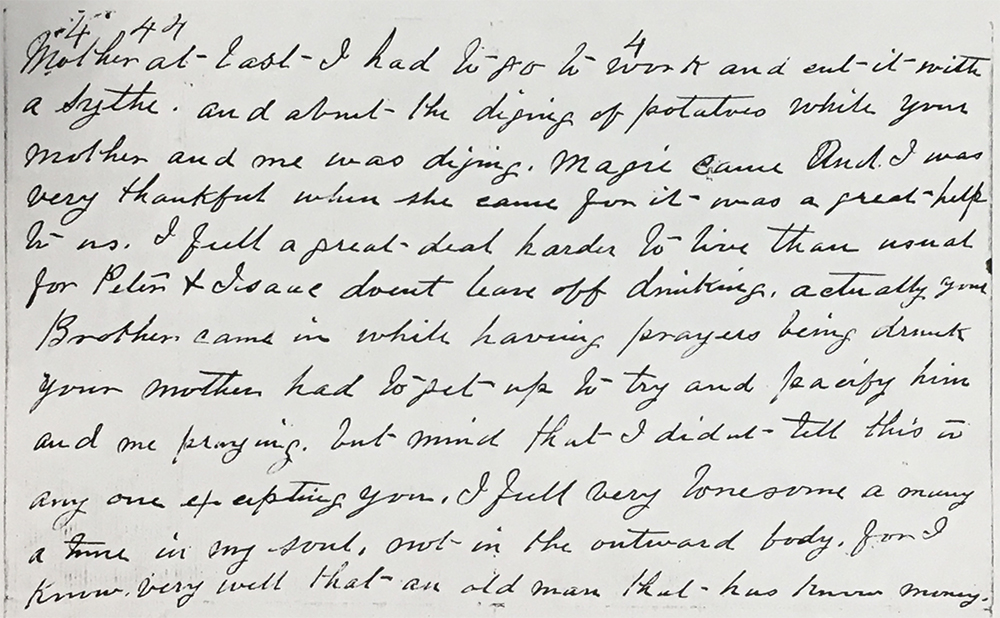 4 44
4
Mother at last I had to go to work and cut it with
a sythe. and about the diging of potatoes while your
mother and me was diging. Magie came And. I was
very thankful when she came for it was a great help
to us. I full a great deal harder to live than usual
for Peter & Isaac dount leave off drinking. actually your
Brother came in while having prayers being drunk
your mother had to get up to try and pacify him
and me praying. but mind that I didnt tell this to
any one excepting you. I full very lonesome a many
a time in my soul, not in the outward body. for I
know very well that an old man that has know money.